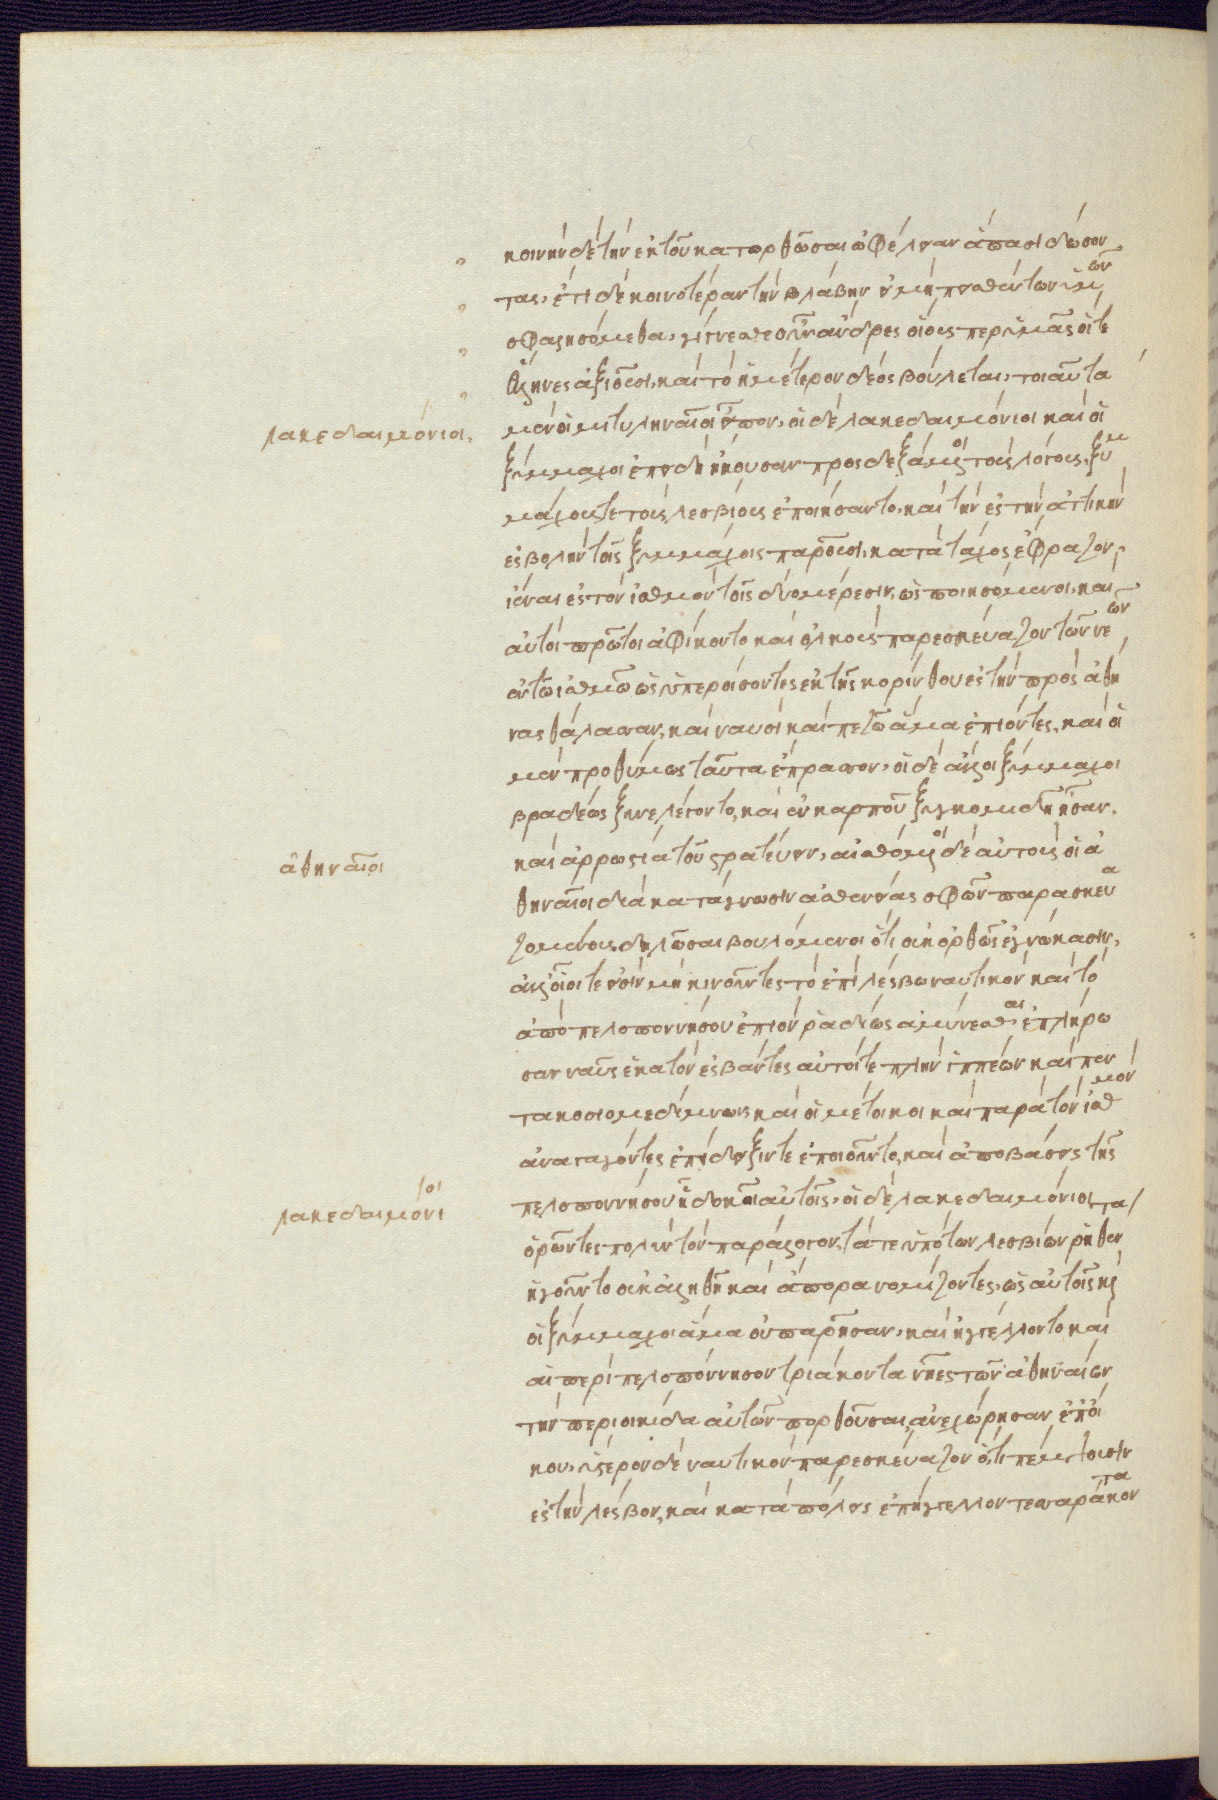 κοινὴν δὲ τὴν ἐκ τοῦ κατορθῶσαι ὠφέλειαν ἅπασι δώσον
τας, ἔτι δὲ κοινοτέραν τὴν βλάβην εἰ μὴ πεισθέντων ὑμῶν
σφαλησόμεθα, γίγνεσθε οὖν ἄνδρες οἵους περ ὑμᾶς οἵ τε
ἕλληνες ἀξιοῦσι, καὶ τὸ ἡμέτερον δέος βούλεται, τοιαῦτα
λακεδαιμόνιοι,
μὲν οἱ μιτυληναῖοι εἶπον, οἱ δὲ λακεδαιμόνιοι καὶ οἱ
ξύμμαχοι ἐπειδὴ ἤκουσαν προσδεξάμενοι τοὺς λόγους, ξυμ
μάχους τε τοὺς λεσβίους ἐποιήσαντο, καὶ τὴν ἐς τὴν ἀττικὴν
ἐσβολὴν τοῖς ξυμμάχοις παροῦσι, κατὰ τάχος ἔφραζον,
ἰέναι ἐς τὸν ἰσθμὸν τοῖς δύο μέρεσιν, ὡς ποιησόμενοι, καὶ
αὐτοὶ πρῶτοι ἀφίκοντο καὶ ὁλκοὺς παρεσκεύαζον τῶν νεῶν
ἐν τῷ ἰσθμῷ ὡς ὑπεροίσοντες ἐκ τῆς κορίνθου ἐς τὴν πρὸς ἀθή
νας θάλασσαν, καὶ ναυσὶ καὶ πεζῷ ἅμα ἐπιόντες, καὶ οἱ
μὲν προθύμως ταῦτα ἔπρασσον, οἱ δὲ ἄλλοι ξύμμαχοι
βραδέως ξυνελέγοντο, καὶ ἐν καρποῦ ξυγκομιδῇ ἦσαν,
καὶ ἀρρωστίᾳ τοῦ στρατεύειν, αἰσθόμενοι δὲ αὐτοὺς οἱ ἀ
ἀθηναῖοι
θηναῖοι διὰ κατάγνωσιν ἀσθενείας σφῶν παρασκευα
ζομένους, δηλῶσαι βουλόμενοι ὅτι οὐκ ὀρθῶς ἐγνώκασιν,
ἀλλ' οἷοί τε εἰσὶν μὴ κινοῦντες τὸ ἐπὶ λέσβῳ ναυτικὸν καὶ τὸ
ἀπὸ πελοποννήσου ἐπιὸν ῥαδίως ἀμύνεσθαι, ἐπλήρω
σαν ναῦς ἑκατὸν ἐσβάντες αὐτοί τε πλὴν ἱππέων καὶ πεν
τακοσιομεδίμνων, καὶ οἱ μέτοικοι καὶ παρὰ τὸν ἰσθμὸν
ἀναγαγόντες ἐπίδειξίν τε ἐποιοῦντο, καὶ ἀποβάσεις τῆς
πελοποννήσου ᾗ δοκοῖ αὐτοῖς, οἱ δὲ λακεδαιμόνιοι
λακεδαιμόνιοι
ὁρῶντες πολὺν τὸν παράλογον, τά τε ὑπὸ τῶν λεσβίων ῥηθέντα
ἡγοῦντο οὐκ ἀληθῆ καὶ ἄπορα νομίζοντες, ὡς αὐτοῖς καὶ
οἱ ξύμμαχοι ἅμα οὐ παρῆσαν, καὶ ἠγγέλλοντο καὶ
αἱ περὶ πελοπόννησον τριάκοντα νῆες τῶν ἀθηναίων
τὴν περιοικίδα αὐτῶν πορθοῦσαι, ἀνεχώρησαν ἐπ' οἴ
κου, ὕστερον δὲ ναυτικὸν παρεσκεύαζον ὅ, τι πέμψουσιν
ἐς τὴν λέσβον, καὶ κατὰ πόλεις ἐπήγγελλον τεσσαράκοντα